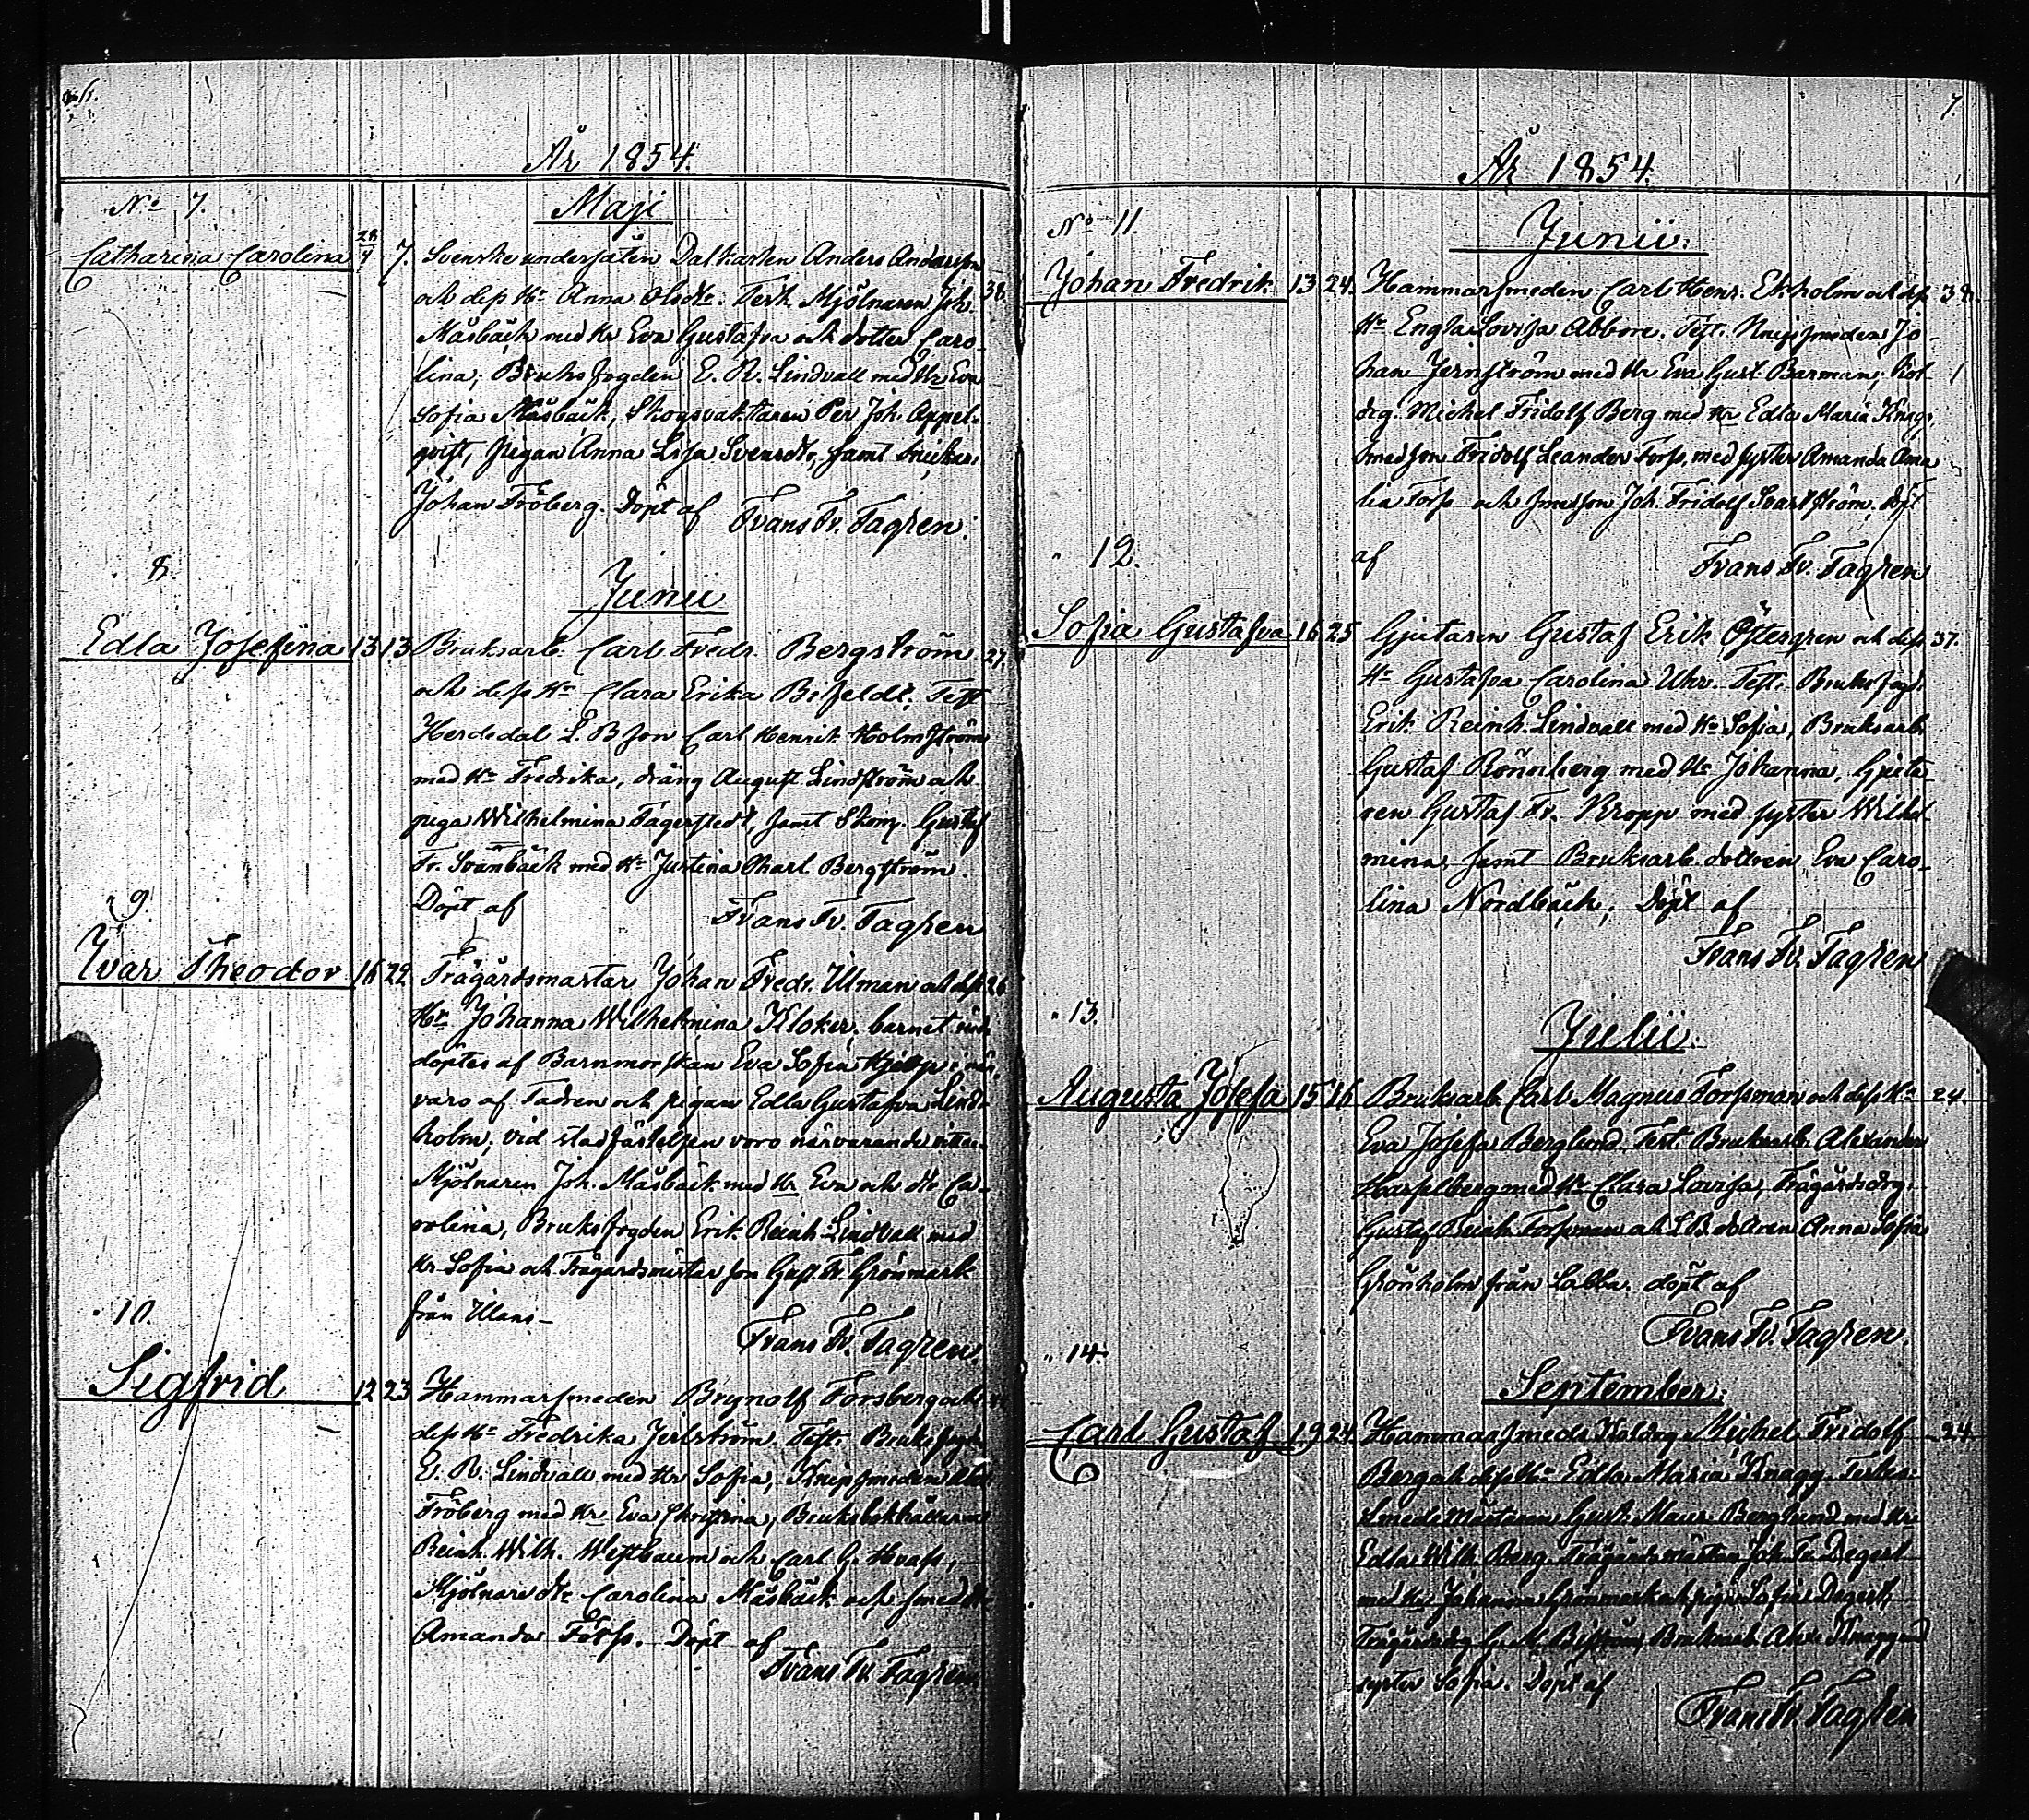 6.
År 1854.
No 7.
Maji
Catharina Carolina 28/4 7. Svenske undersåten Dalkarlen Anders Andersson
och dess Hu Anna Olsdr. Test. Mjölnaren Joh. 38.
Måsbäck med Hu Eva Gustafva och dotter Caro-
lina, Bruksfogden E. R. Lindvall med Hu Eva
Sofia Måsbäck, Skogsvaktaren Per Joh. Appel-
qvist, pigan Anna Lisa Svensdr, samt
Johan Fröberg. Döpt af Frans Fr. Tagren.
8.
Junii
Edla Josefina 13 13 Bruksarb. Carl Fredr. Bergström 27.
och dess Hu Clara Erika Bifeldt, Test
L. B. son Carl Henrik Holmström
med Hu Fredrika, dräng August Lindström och
piga Wilhelmina Fagerstedt, samt Skom. Gustaf
Fr. Svanbäck med Hu Justina Charl. Bergström.
Döpt af Frans Fr. Tagren
9.
Ivar Theodor 16 22 Trägårdsmästar Johan Fredr. Ulman och dess 26
Hu Johanna Wilhelmina Kloker, barnet
döptes af Barnmorskan Eva Sofia i när-
varo af Fadren och pigan Edla Gustafva Lind-
holm, vid stadfästelsen voro närvarande
Mjölnaren Joh. Måsbäck med Hu Eva och dr Ca-
rolina, Bruksfogden Erik Reinh. Lindvall med
Hu Sofia och Trägårdsmästar son Gust. Fr. Grönmark
från
Frans Fr. Tagren.
10.
Sigfrid 12 23 Hammarsmeden Brynolf Forsberg och
dess Hu Fredrika Test. Bruksfogd.
E. R. Lindvall med Hu Sofia, Knipsmeden
Fröberg med Hu Eva Christina, Bruksbokhållarne
Reinh. Wilh. Westbaum och Carl G.
Mjölnare dr Carolina Måsbäck och smed dr
Amanda Forss. Döpt af
Frans Fr. Tagren.
7.
År 1854.
No 11.
Junii.
Johan Fredrik 13 24. Hammarsmeden Carl Henr. Ekholm och dess
Hu Engla Lovisa Abborre. Test. Knipsmeden Jo-
han Jernström med Hu Eva Gust. Barman, Kol-
drg. Michel Fridolf Berg med Hu Edla Maria Knagg,
smedson Fridolf Leander Forss, med syster Amanda Ama
lia Forss och smedson Joh. Fridolf Svartström, Döpt
af Frans Fr. Tagren
" 12.
Sofia Gustafva 16 25 Gjutaren Gustaf Erik Östergren och dess 37.
Hu Gustafva Carolina Uhr. Test. Bruksfogd.
Erik Reinh. Lindvall med Hu Sofia, Bruksarb.
Gustaf Rönnberg med Hu Johanna, Gjuta-
ren Gustaf Fr. Kropp med syster Wilhel-
mina, samt Bruksarb. dottren Eva Caro-
lina Nordbäck, Döpt af
Frans Fr. Tagren
" 13.
Julii.
Augusta Josefa 15 16 Bruksarb. Carl Magnus Forssman och dess Hu 24.
Eva Josefa Berglund. Test. Bruksarb. Alexander
Hasselberg med Hu Clara Lovisa, Trägårdsdrg.
Gustaf Reinh. Forssman och L.B. dottren Anna Sofia
Grönholm från Labba. döpt af
Frans Fr. Tagren.
" 14.
September.
Carl Gustaf 19 24. Hammarsmeds Koldrg Michel Fridolf 24.
Berg och dess Hu Edla Maria Knagg. Testes:
Smeds Mästaren Gust. Maur. Berglund med Hu
Edla Wilh. Berg. Trägårdsmästar Joh. Fr. Degert
med Hu Johanna Grönmark och pigan Sofia Degert,
Trägårdsdrg G. M. Biström, Bruksarb. Alex. Knagg med
syster Sofia. Döpt af
Frans Fr. Tagren